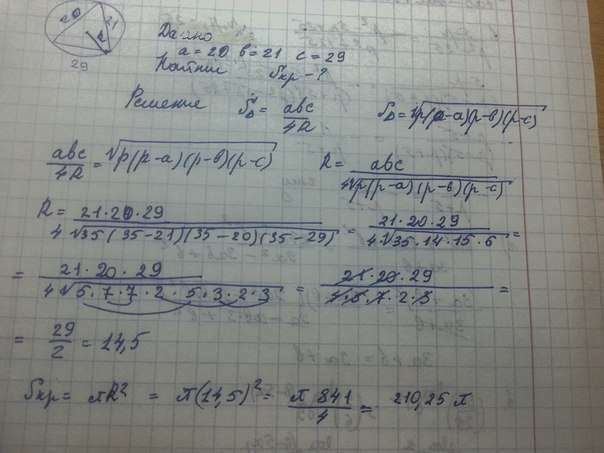 20 21
29
Дано
a = 20 в = 21 c = 29
Найти Sкр - ?
Решение S△ = abc/4R S△ = √p(p-a)(p-в)(p-c)
abc/4R = √p(p-a)(p-в)(p-c) R = abc/4√p(p-a)(p-в)(p-c)
R = 21·20·29/4√35(35-21)(35-20)(35-29) = 21·20·29/4√35·14·15·6 =
= 21·20·29/4√5·7·7·2·5·3·2·3 = 21·20·29/4·5·7·2·3 =
= 29/2 = 14,5
Sкр = πR² = π(14,5)² = π 841/4 = 210,25 π